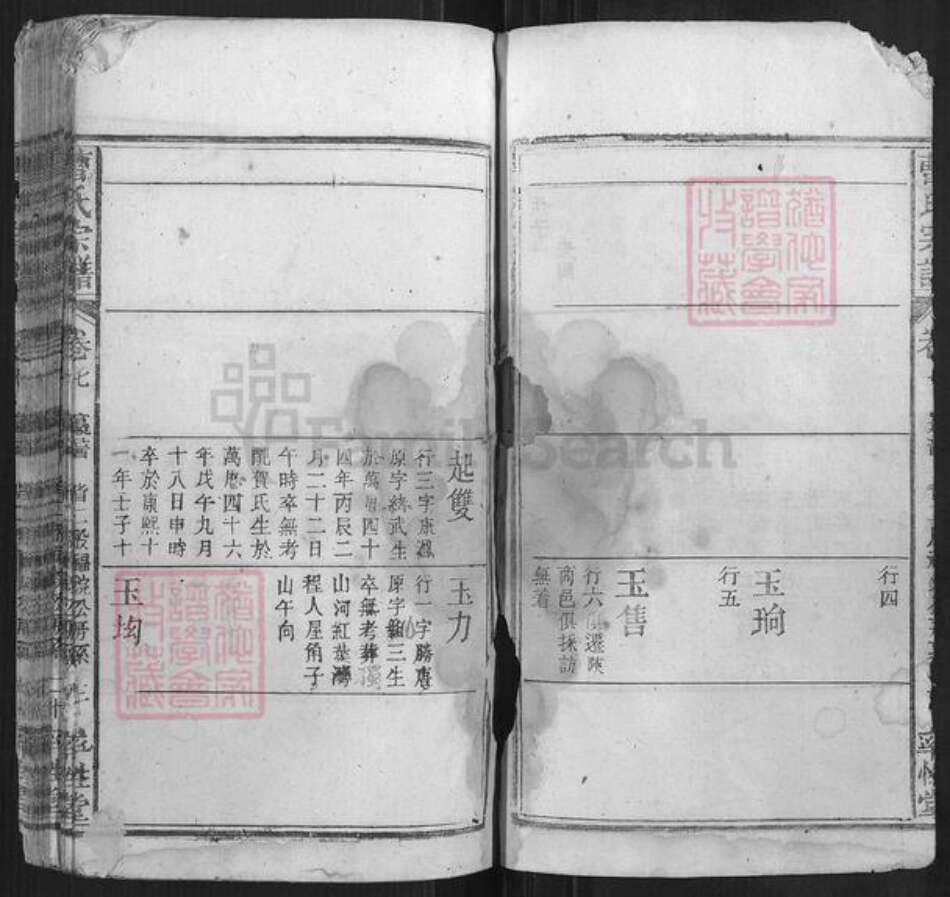 行四
玉珦
行五
玉售
行六俱遷陝
南邑俱採訪
無着
起雙
行三字康憑
原字綍武生
於萬曆四十
四年丙辰二
月二十二日
午時卒無考
配賀氏生於
萬曆四十六
年戊午九月
十八日申時
卒於康熙十
一年壬子十
玉力
行一字勝唐
原字三生
卒無考葬濆
山河紅葉灣
程人屋角子
山午向
玉均
曹氏宗譜
卷七
率性堂
猶他家
譜學會
收藏
猶他家
譜學會
收藏
FamilySearch